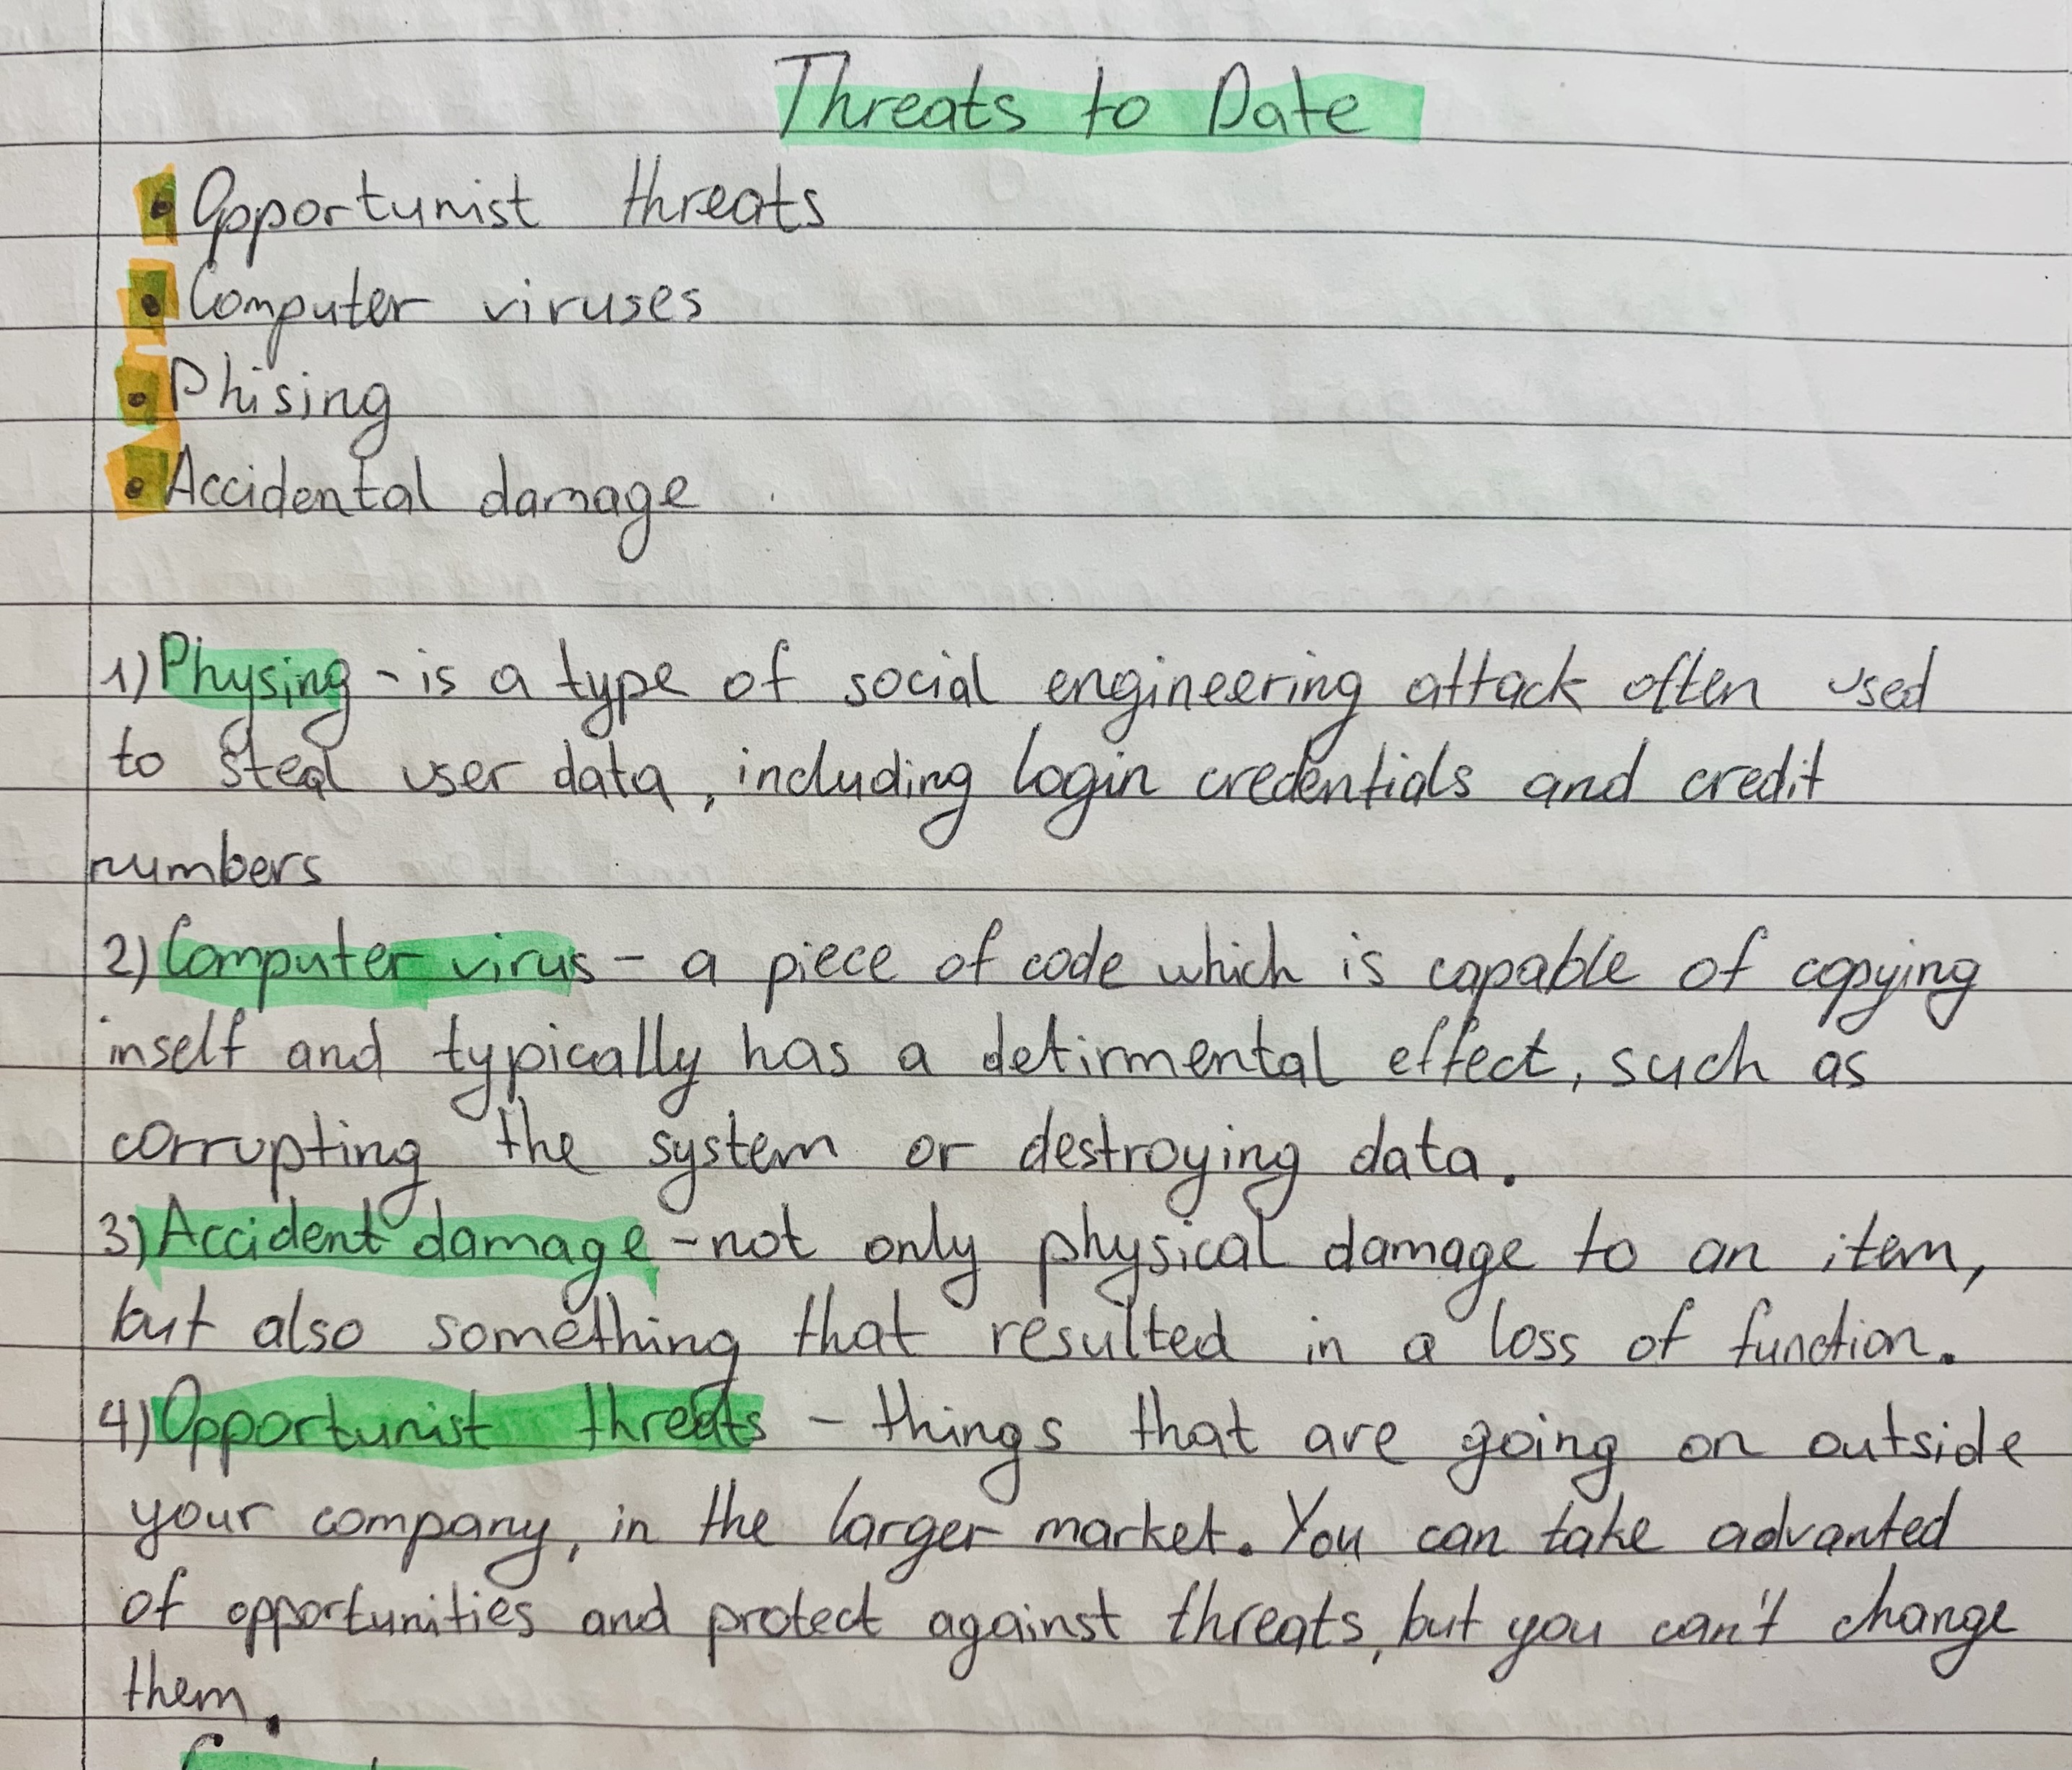 Threats to Date
• Opportunist threats
• Computer viruses
• Phising
• Accidental damage
1) Physing - is a type of social engineering attack often used
to steal user data, including login credentials and credit
numbers
2) Computer virus - a piece of code which is capable of copying
inself and typically has a detirmental effect, such as
corrupting the system or destroying data.
3) Accident damage - not only physical damage to an item,
but also something that resulted in a loss of function.
4) Opportunist threats - things that are going on outside
your company, in the larger market. You can take advanted
of opportunities and protect against threats, but you can't change
them.